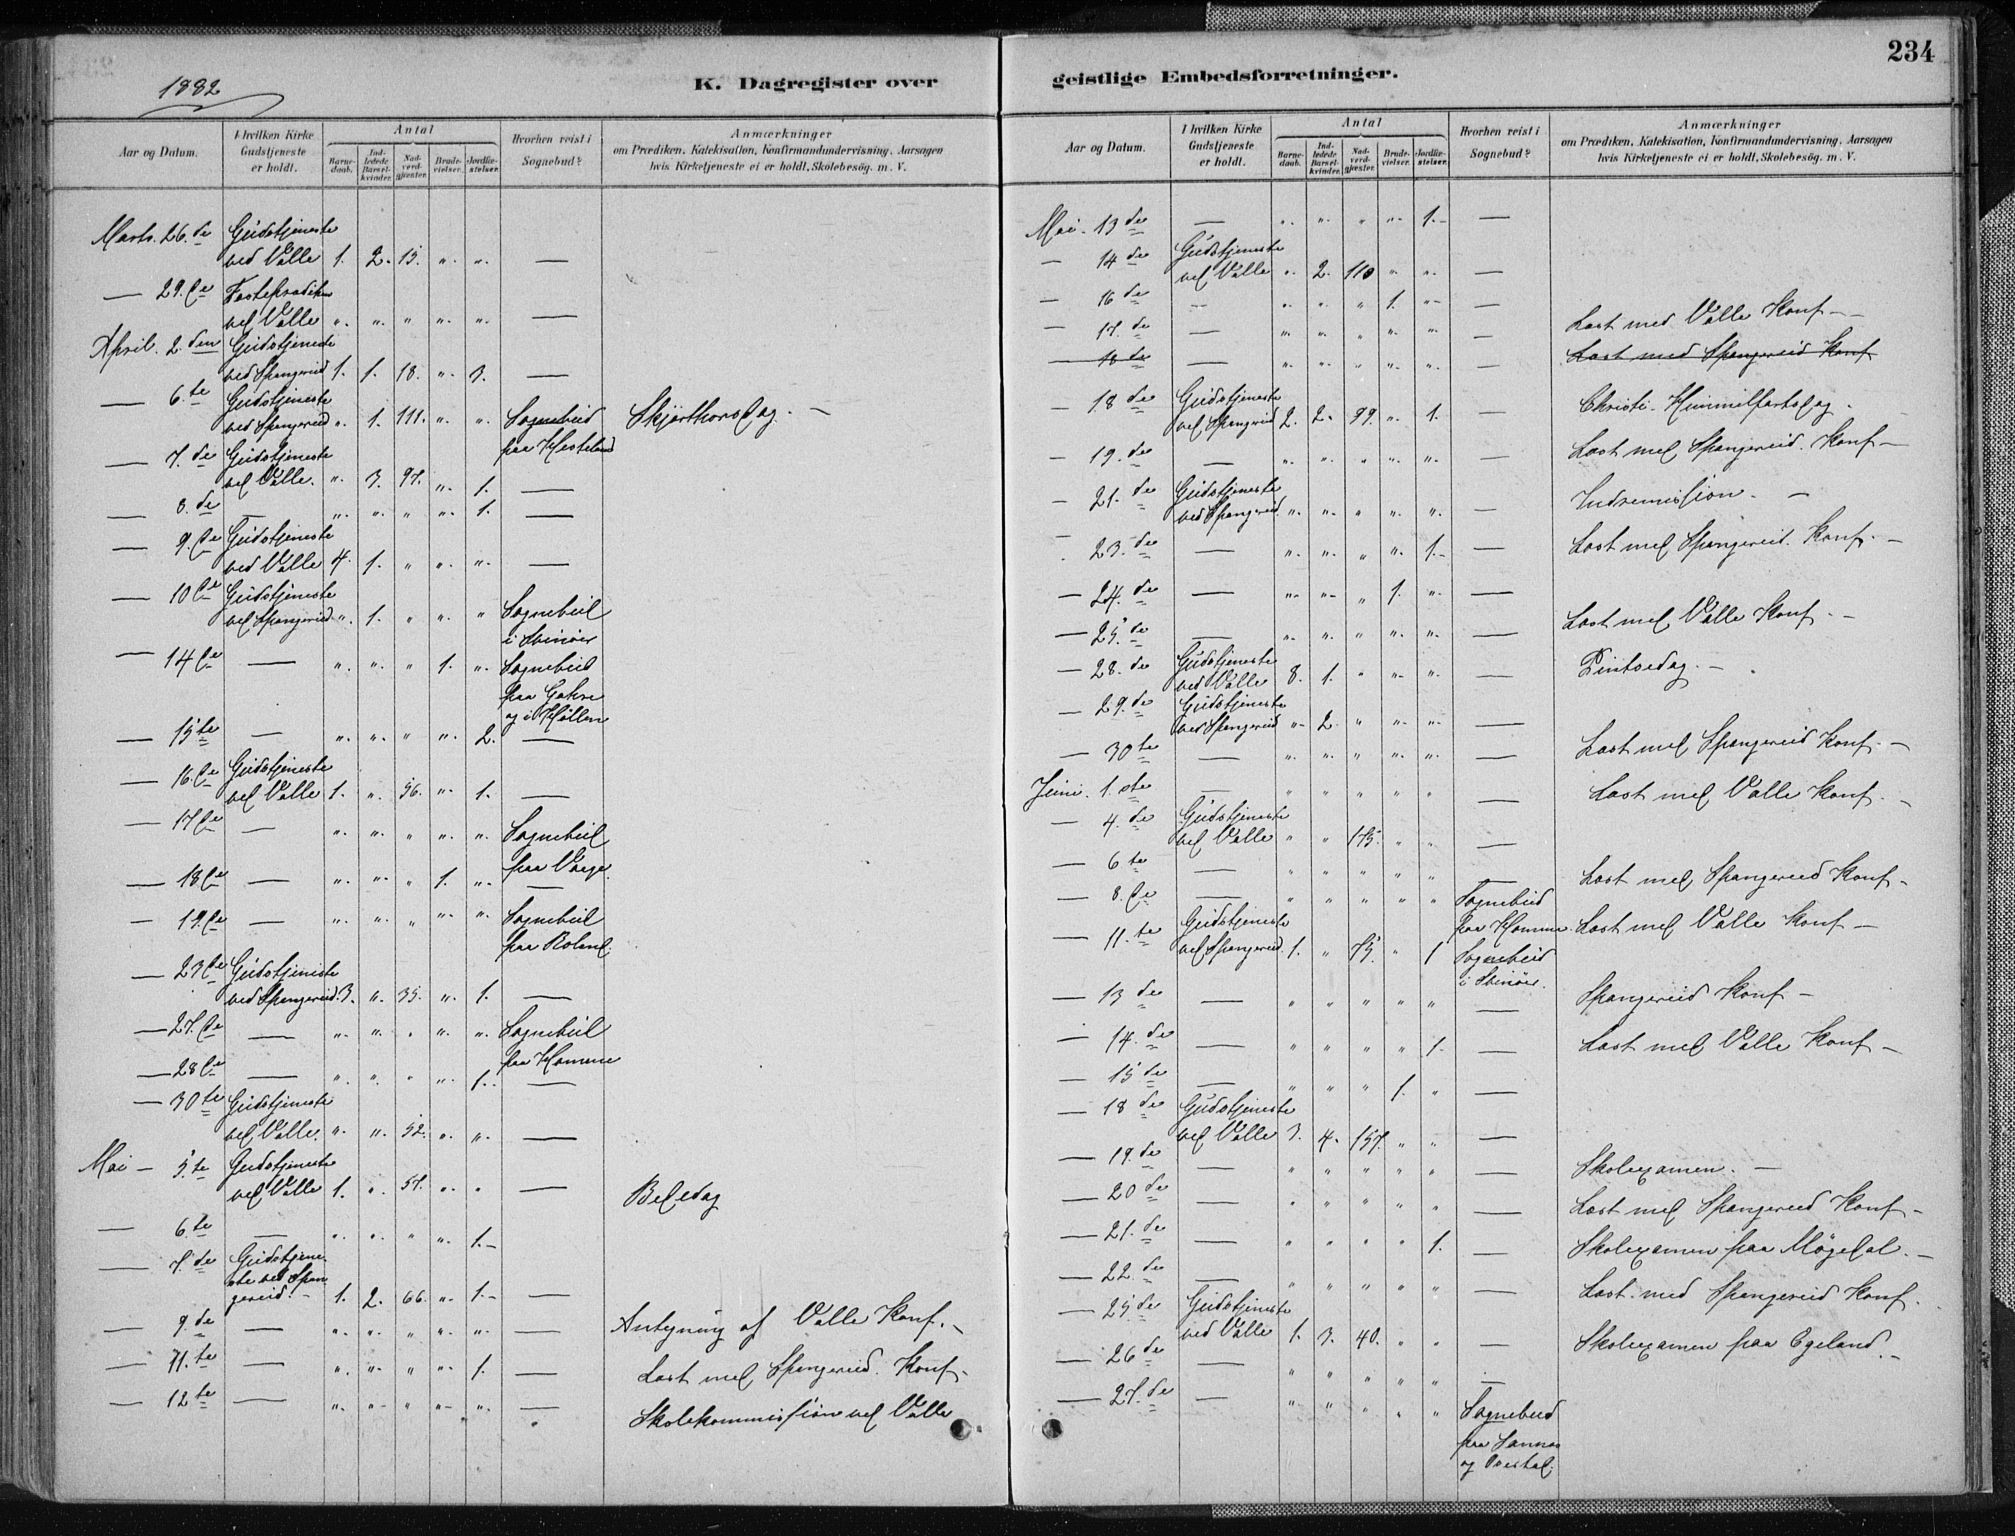 234
1882
K. Dagregister over
geistlige Embedsforretninger.
Aar og Datum.
I hvilken Kirke Gudstjeneste er holdt.
Antal
Barnedaab.
Indledede Barselkvinder.
Nadverdgjæster.
Brudevielser.
Jordfæstelser.
Hvorhen reist i Sognebud?
Anmærkninger
om Prædiken, Katekisation, Konfirmandundervisning, Aarsagen
hvis Kirketjeneste ei er holdt, Skolebesøg. m. V.
Marts. 26.de Gudstjeneste
ved Valle 1. 2. 15. " " —
— 29.de Fasteprædiken
ved Valle " " " " " —
April. 2.den Gudstjeneste
ved Spangereid 1. 1. 18. " 3. —
— 6.te Gudstjeneste
ved Spangereid " 1. 111. " " Sognebud Skjærthorsdag. —
paa Hesteland
— 7.de Gudstjeneste
ved Valle. " 3. 97. " 1. —
— 8.de — " " " " 1. —
— 9.de Gudstjeneste
ved Valle 4. 1. " " " —
— 10de Gudstjeneste
ved Spangereid " 1. " " " Sognebud
i Svinøer
— 14de — " " " 1. " Sognebud
paa Gahre
og i Høllen
— 15te — " " " " 2. —
— 16.de Gudstjeneste
ved Valle 1. " 56. " 1. —
— 17de — " " " " " Sognebud
paa Vaage.
— 18de — " " " 1. " —
— 19.de — " " " " " Sognebud
paa Roland.
— 23de Gudstjeneste
ved Spangereid. 3. " 35. " 1. —
— 27.de — " " " " " Sognebud
paa Homme
— 28de — " " " " 1. —
— 30te Gudstjeneste
ved Valle. " " 52. " " —
Mai — 5.te Gudstjeneste
ved Valle 1. " 57. " " — Bededag
— 6te — " " " " 1. —
— 7.de Gudstjene-
ste ved Span-
gereid. — 1. 2. 66. " 1. —
— 9.de — " " " " " — Antegning af Valle Konf. —
— 11.te — " " " " 1. — Læst med Spangereid. Konf —
— 12te — " " " " " — Skolekommission ved Valle
Aar og Datum.
I hvilken Kirke Gudstjeneste er holdt.
Antal
Barnedaab.
Indledede Barselkvinder.
Nadverdgjæster.
Brudevielser.
Jordfæstelser.
Hvorhen reist i Sognebud?
Anmærkninger
om Prædiken, Katekisation, Konfirmandundervisning, Aarsagen
hvis Kirketjeneste ei er holdt, Skolebesøg. m. V.
Mai. 13de — " " " " 1. —
— 14de Gudstjeneste
ved Valle " 2. 110 " " —
— 16de — " " " 1. " —
— 17.de — " " " " " — Læst med Valle Konf —
— 18de — " " " " " — Læst med Spangereid Konf
— 18de Gudstjeneste
ved Spangereid 2. 2. 99. " 1. — Christi. Himmelfartsdag.
— 19.de — " " " " " — Læst med Spangereid. Konf —
— 21.de Gudstjeneste
ved Spangereid. " " " " " — Indremission. —
23.de — " " " " 1. — Læst med Spangereid. Konf. —
— 24.de — " " " 1. " —
— 25.de — " " " " " — Læst med Valle Konf. —
— 28.de Gudstjeneste
ved Valle 8. 1. " " " — Pintsedag. —
— 29.de Gudstjeneste
ved Spangereid " 2. " " " —
— 30te — " " " " " — Læst med Spangereid Konf. —
Juni. 1.ste — " " " " " — Læst med Valle Konf. —
— 4.de Gudstjeneste
ved Valle " " 175. " " —
— 6te — " " " " " — Læst med Spangereid Konf —
— 8.de — " " " " " Sognebud
paa Homme. Læst med Valle Konf —
— 11.te Gudstjeneste
ved Spangereid. 1. " 75. " 1 Sognebud
i Svinøer.
— 13de — " " " " " — Spangereid Konf —
— 14.de — " " " " 1. — Læst med Valle Konf —
— 15de — " " " 1. " —
— 18de Gudstjeneste
ved Valle 3. 4. 157. " " —
— 19.de — " " " " " — Skoleexamen. —
— 20de — " " " " " — Læst med Spangereid Konf —
— 21.de — " " " " 1. — Skoleexamen paa Møgedal. —
— 22.de — " " " " " — Læst med Spangereid Konf.
— 25de Gudstjeneste
ved Valle 1. 3. 40. " " — Skoleexamen paa Egeland. —
— 26de — " " " " " —
— 27.de — " " " " " Sognebud
paa Sannes